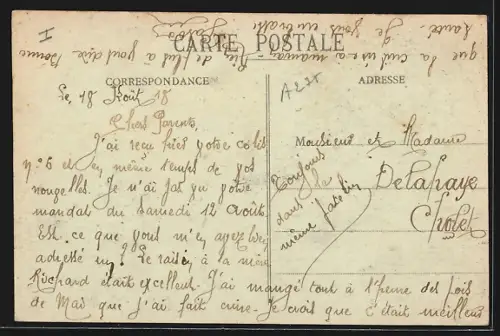 I
CARTE POSTALE
CORRESPONDANCE
ADRESSE
Le, 18 Août 18
Chers Parents,
J'ai reçu hier votre colis
n° 6 et en même temps de vos
nouvelles. Je n'ai pas vu votre
mandat du Samedi 12 Août.
Est ce que vous m'en avez bien
adressé un? Le raisin à la mère
Richard était excellent. J'ai mangé tout à l'heure des pois
de Mai que j'ai fait cuire. Je crois que c'était meilleur
que la cuisine à maman. Rien de plus à vous dire. Bonne
santé. Je vous embrasse
Toujours
dans la
même
Monsieur et Madame
Delahaye
Cholet